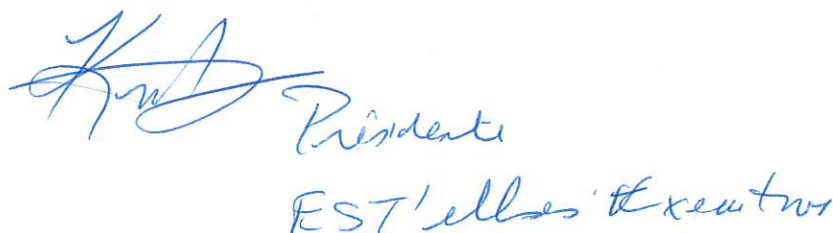 Présidente
EST'elles Executives